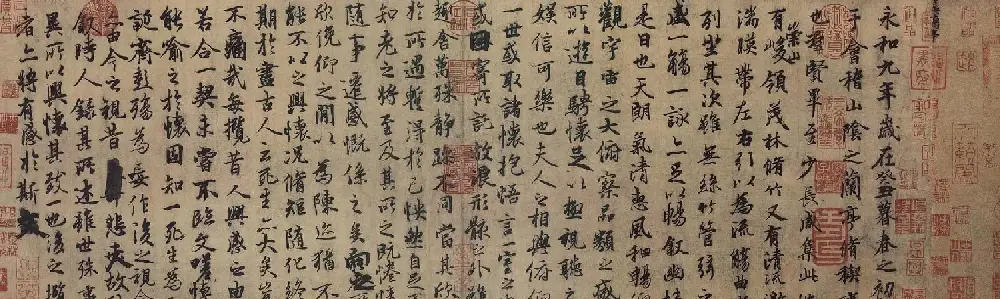 永和九年歲在癸丑暮春之初
于會稽山陰之蘭亭脩稧
也群賢畢至少長咸集此
有崇山峻領茂林脩竹又有清流激
湍暎帶左右引以為流觴曲
列坐其次雖無絲竹管弦之
盛一觴一詠亦足以暢敘幽情
是日也天朗氣清惠風和暢仰
觀宇宙之大俯察品類之盛
所以遊目騁懷足以極視聽之
娛信可樂也夫人之相與俯仰
一世或取諸懷抱悟言一室之
或因寄所託放浪形骸之外雖
趣舍萬殊靜躁不同當其欣
於所遇蹔得於己怏然自足
知老之將至及其所之既惓
隨事遷感慨係之矣向之
欣俛仰之閒以為陳迹猶不
能不以之興懷況脩短隨化終
期於盡古人云死生亦大矣豈
不痛哉每攬昔人興感之由
若合一契未嘗不臨文嗟悼
能喻之於懷固知一死生為
誕齊彭殤為妄作後之視今
亦由今之視昔悲夫故
敘時人錄其所述雖世殊事
異所以興懷其致一也後之攬
者亦將有感於斯文